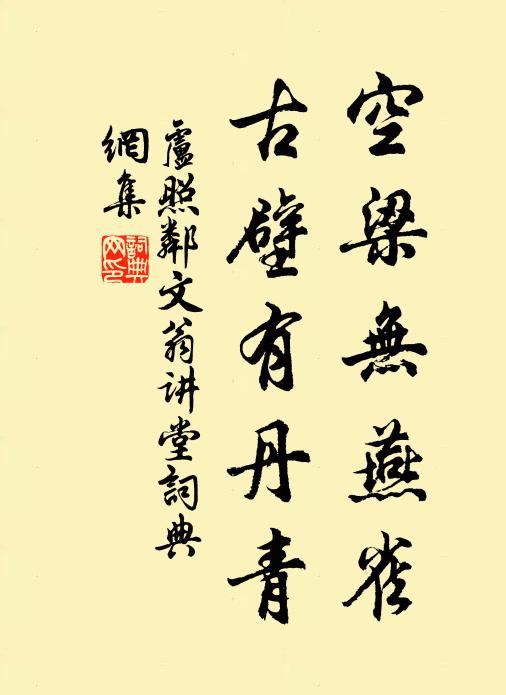 空梁無燕雀
古壁有丹青
盧照鄰文翁讲堂詞典
網集
詞典網印